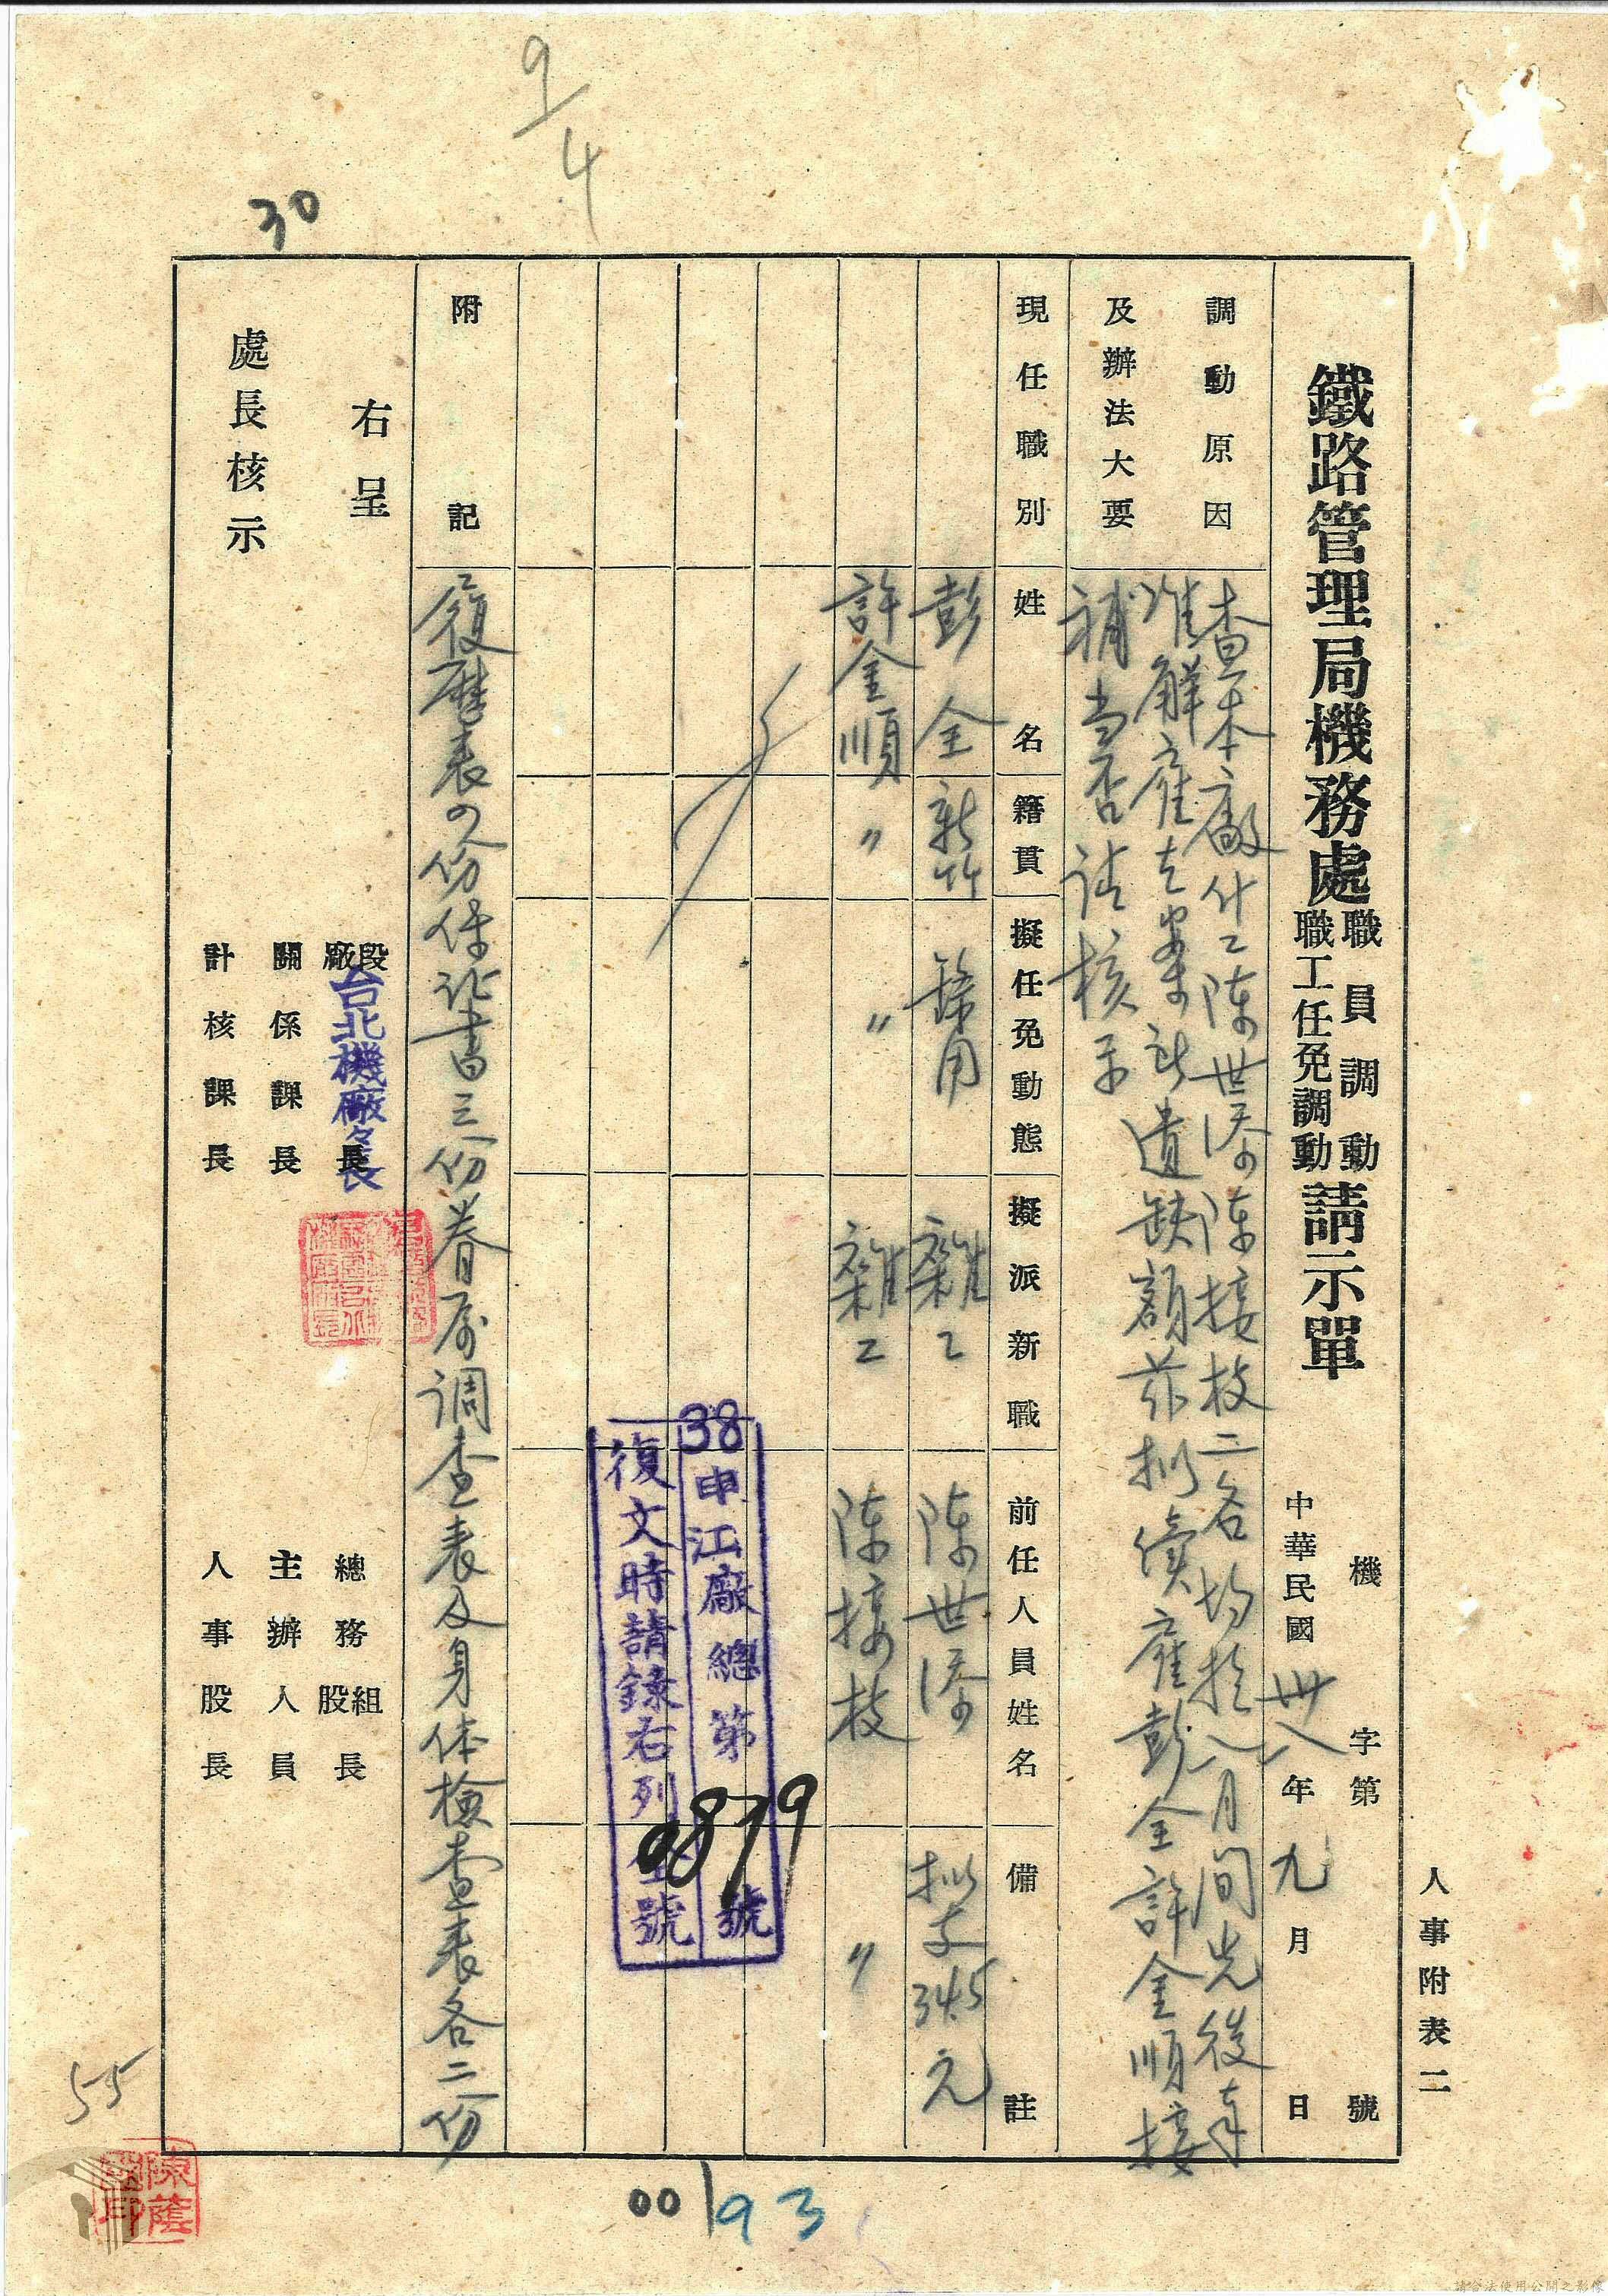 人事附表二
鐵路管理局機務處職員調動職工任免調動請示單
機 字第 號
中華民國卅八年九月 日
調動原因及辦法大要
查本廠什工陳世添陳接枝二名均於八月間先後奉
准解雇去案所遺缺額茲拟僱彭全許金順接
補当否请核示
現任職別 姓名 籍貫 擬任免動態 擬派新職 前任人員姓名 備註
彭全 新竹 錄用 雜工 陳世添 拟支345元
許金順 〃 〃 雜工 陳接枝 〃
38申江廠總第0879號
復文時請錄右列 號
附記
復歷表四份保证書三份眷属调查表及身体檢查表各二份
右呈
處長核示
廠段長
台北機廠々長
關係課長
計核課長
總務組股長
主辦人員
人事股長
9/4
30
55
00193
陳蔭
印
請合法使用公開之影像